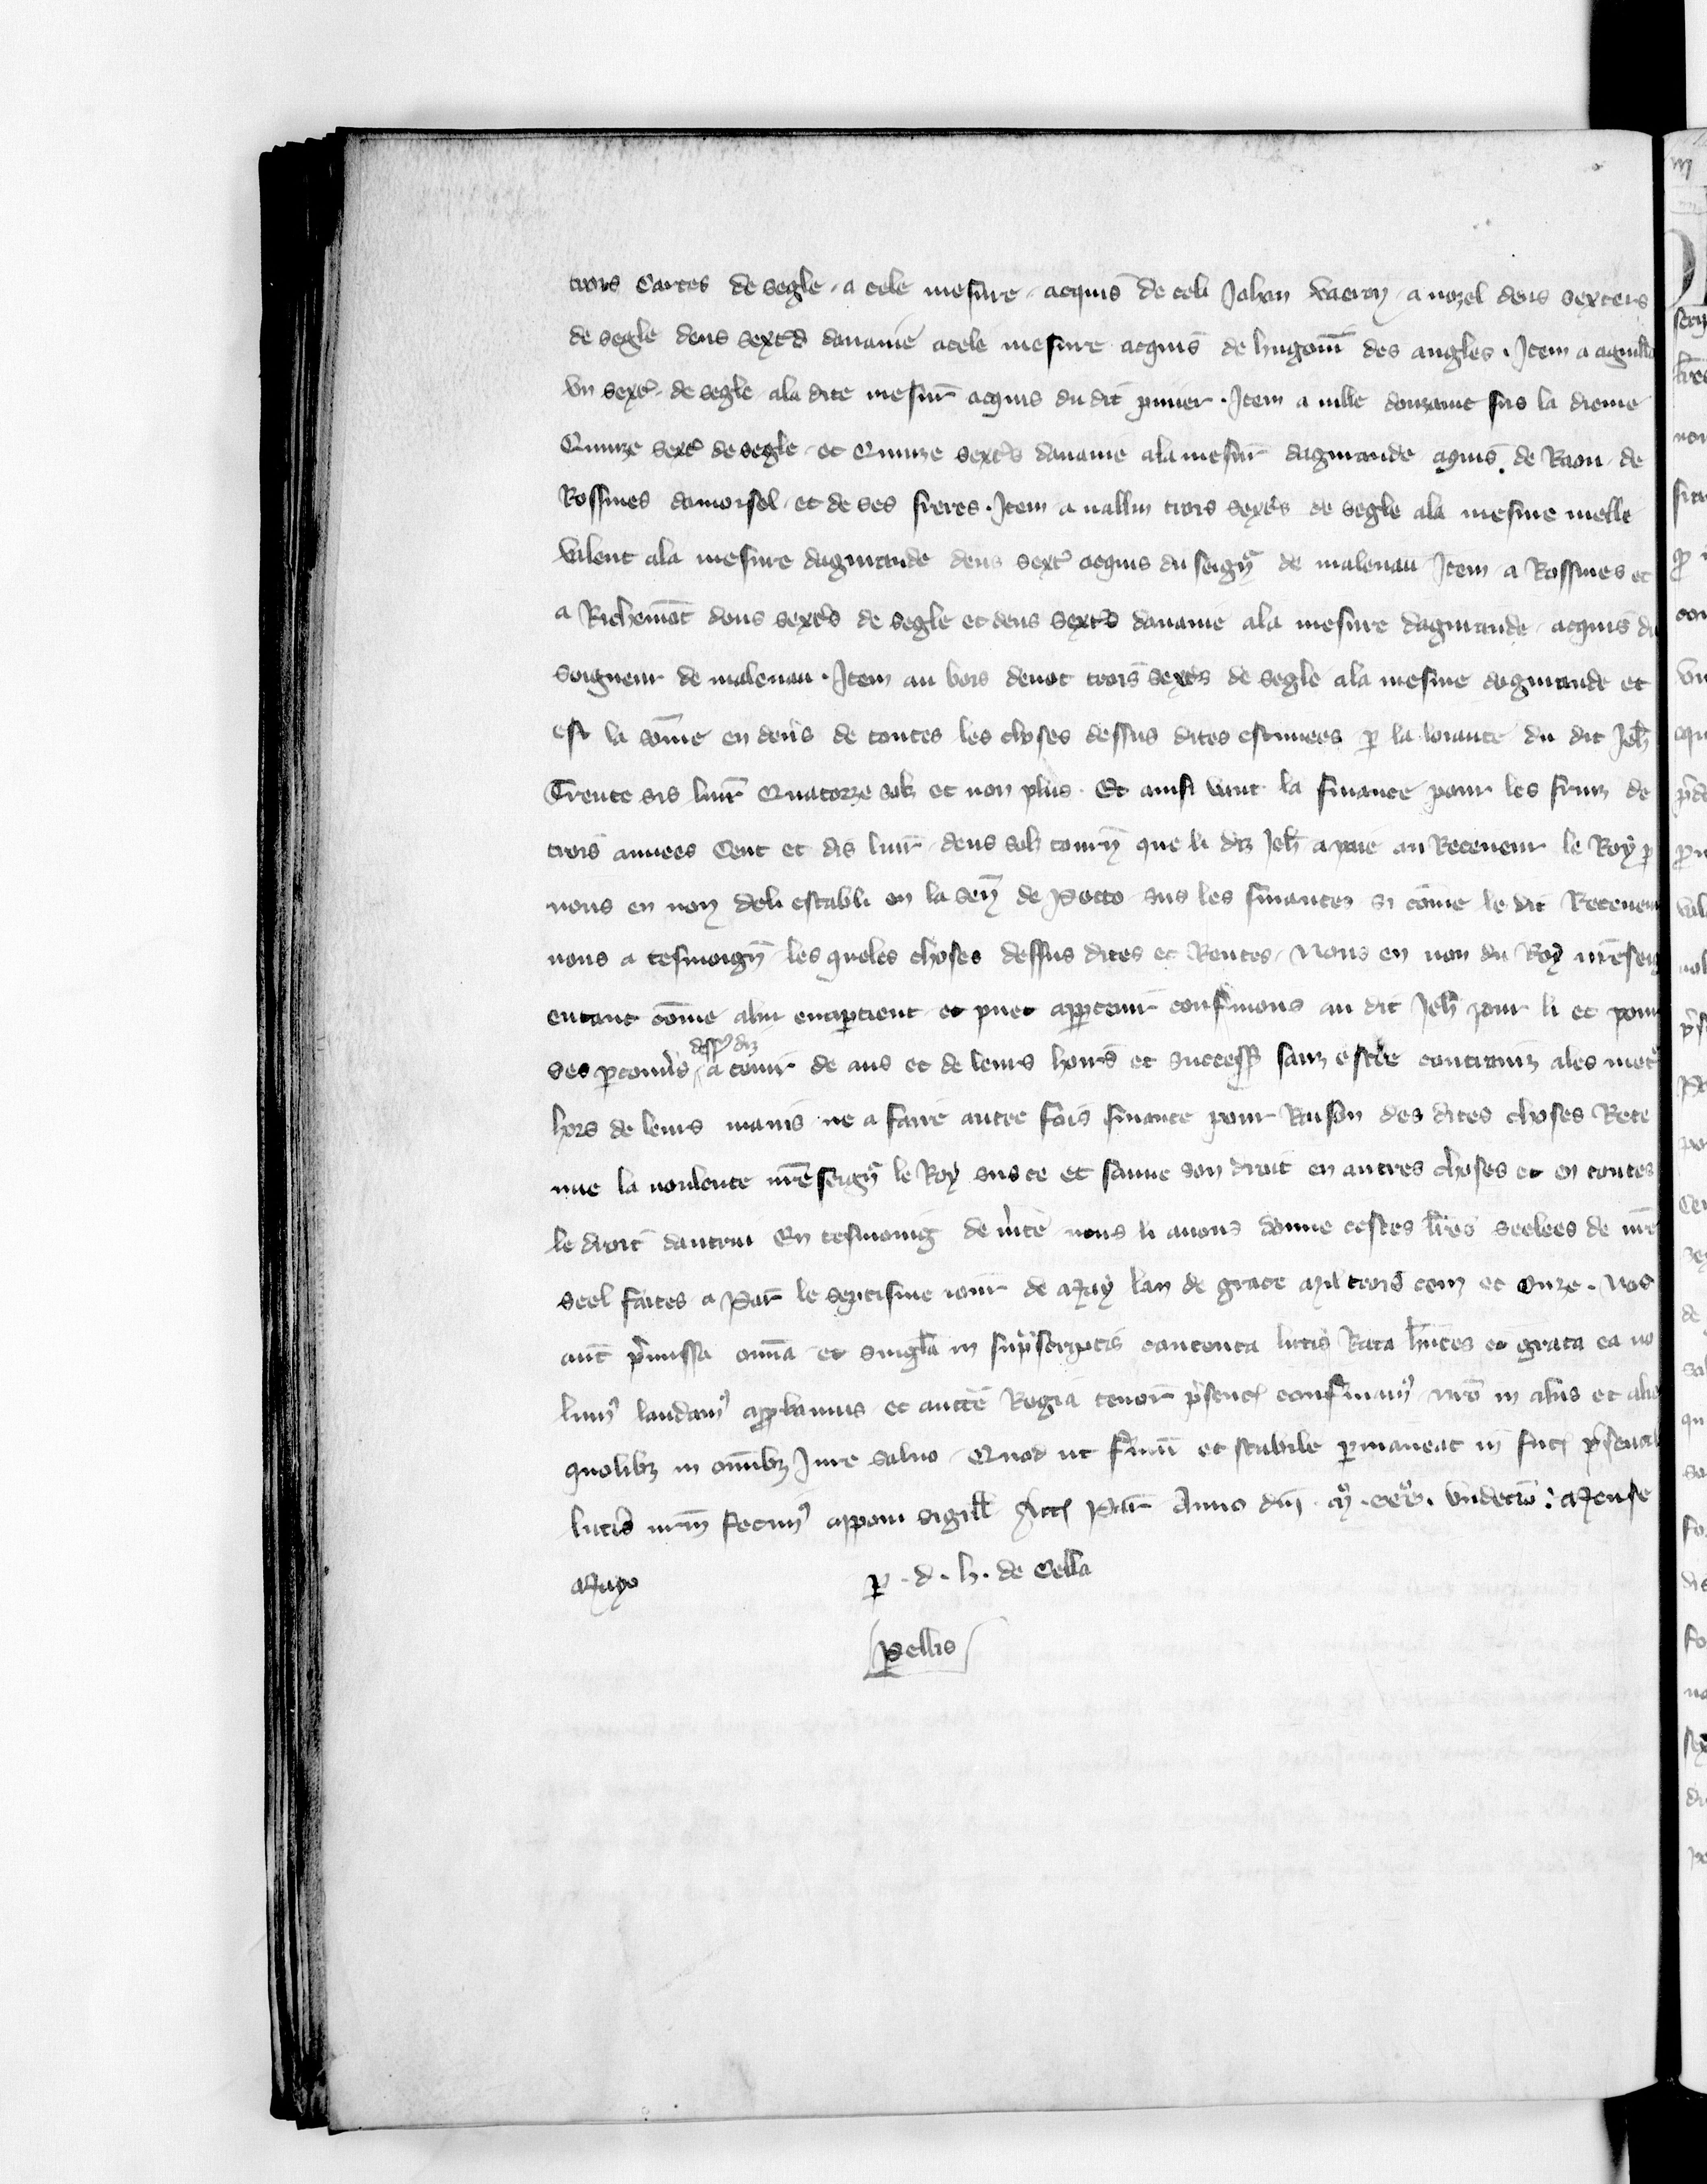 trois cartes de segle a cele mesure acquis de celi Jahan a nozel deus sexters
de segle deus sext's dauaine a cele mesure acquis de hugonin des angles . Item a
vn sext' de segle a la dite mesur acquis du dit prinier . Item a nille sus la dieme
Quinze sext' de segle et Quinze sext's dauaine a la mesur daguirande aquis de Raou de
Rossines damoisel et de ses freres . Item a nallin trois sext's de segle a la mesme melle
valent a la mesure daguirande deus sext' acquis du seign' de malenau Item a Rossines et
a Richemot deus sext's de segle et deus sext's dauaine a la mesure daguirande acquis du
seigneur de malenau . Item au bois denot trois sext's de segle a la mesme daguirande et
est la somme en deners de toutes les choses dessus dites estimees p la loiaute du dit Jeh
Trente sis liur Quatorze solz et non plus . Et ainsi vint la finance pour les fruiz de
trois annees Cent et dis liur deus solz tourn que li diz Jeh a paie au Receueur le Roy p
nous en non de li establi en la Sen de sus les finances si come le dit Receueur
nous a tesmoign les queles choses dessus dites et Rentes Nous en non du Roy nre seig
entant come a lui enapartient et puet appartenir confermons au dit Jeh pour li et pour
ses parconiers dess' diz a tenir de aus et de leurs hoirs et success sanz estre contrainz a les metre
hors de leurs mains ne a faire autre fois finance pour Raison des dites choses Rete
nue la uolente nre seign' le Roy sus ce et sauue son droit en autres choses et en toutes
le droit dautrui En tesmoing de uerite nous li auons donne cestes lres seelees de nre
seel faites a Par le septisme iour de May lan de grace mil trois cenz et Onze . Nos
aut p'missa omia et singla in sup'scriptis contenta litt'is Rata hntes et grata ea uo
lum' laudam' approbamus et aucte Regia tenor p'sent confirmam' nro in aliis et alie
quolibz in omibz Jure saluo Quod ut firmu et stabile permaneat in fut p'sentib
litt'is nrm fecim' apponi sigill Act Par Anno dni mo. ccco. vndecimo : Mense
Mayo
p . d . h . de Cella
Pellis